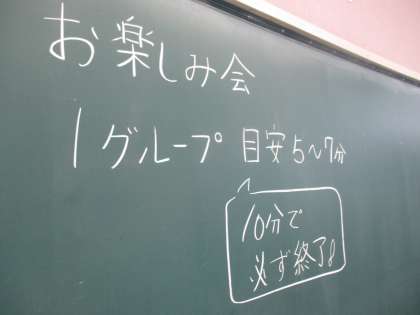 お楽しみ会
1グループ 目安5〜7分
10分で
必ず終了!